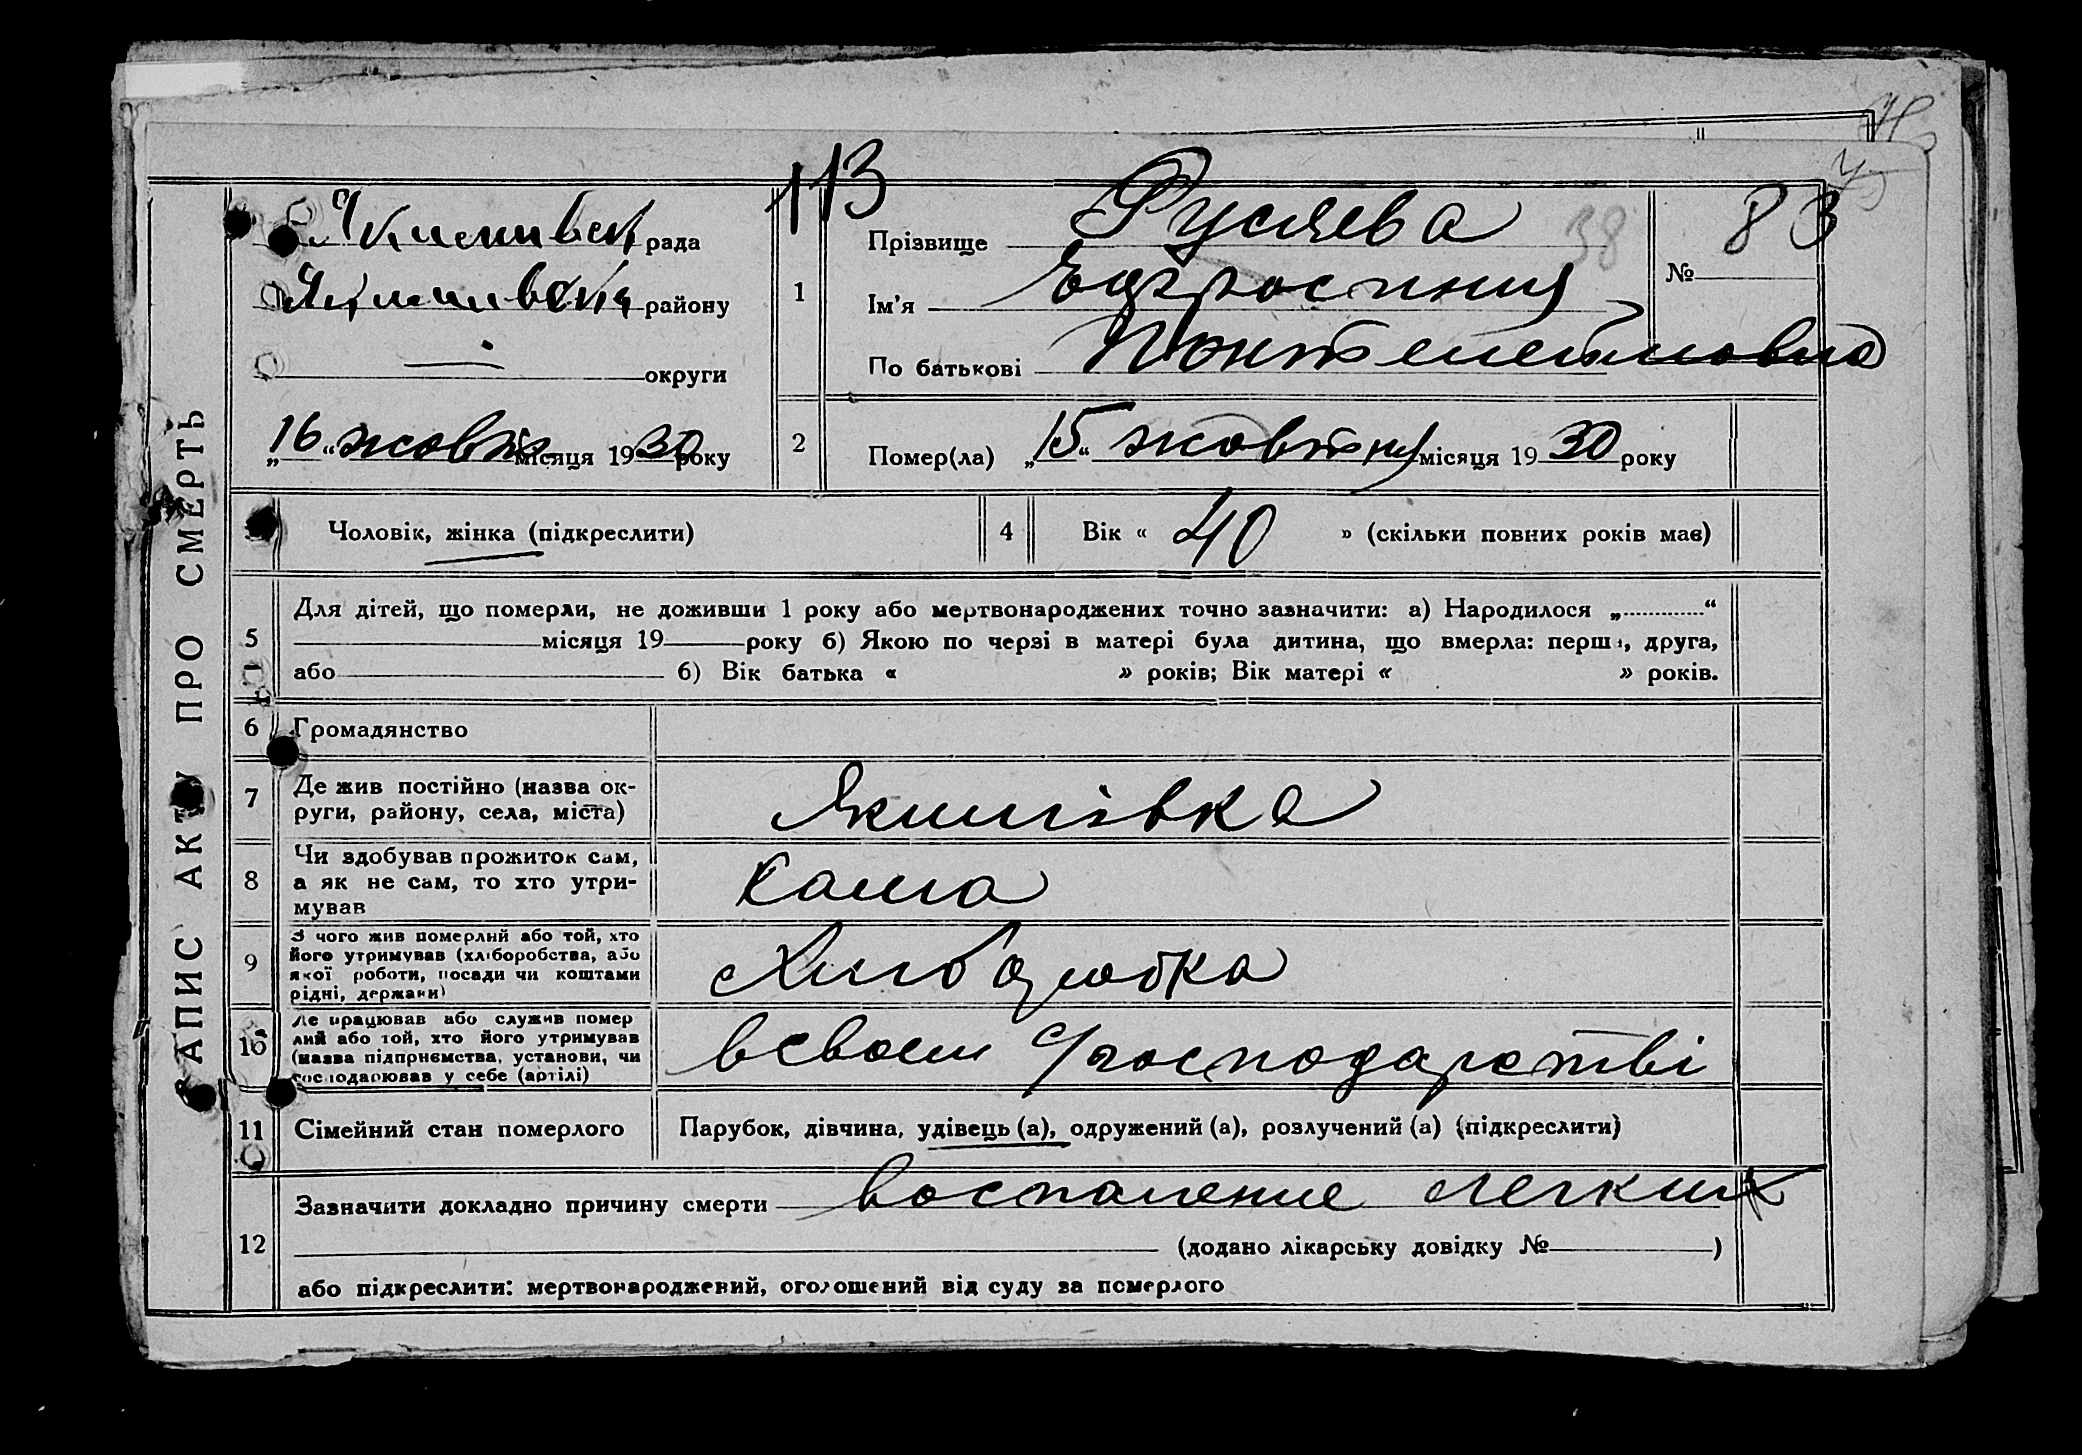 ЗАПИС АКТУ ПРО СМЕРТЬ
113
Якимивск рада
Якимивски району
округи
„16“ жовтн місяця 1930 року
1
Прізвище Русяева
38
№ 83
Ім'я
По батькові
2
Помер(ла) „15“ жовтня місяця 1930 року
Чоловік, жінка (підкреслити)
4
Вік « 40 » (скільки повних років має)
5
Для дітей, що померли, не доживши 1 року або мертвонароджених точно зазначити: а) Народилося „.............“
місяця 19 року б) Якою по черзі в матері була дитина, що вмерла: перша, друга,
або б) Вік батька « » років; Вік матері « » років.
6
Громадянство
7
Де жив постійно (назва ок-
руги, району, села, міста)
Якимівка
8
Чи здобував прожиток сам,
а як не сам, то хто утри-
мував
Сама
9
З чого жив померлий або той, хто
його утримував (хліборобства, або
якої роботи, посади чи коштами
рідні, держави)
10
Де працював або служив помер
лий або той, хто його утримував
(назва підприємства, установи, чи
господарював у себе (артілі)
всвоем господарстві
11
Сімейний стан померлого
Парубок, дівчина, удівець (а), одружений (а), розлучений (а) (підкреслити)
12
Зазначити докладно причину смерти воспаление легких
(додано лікарську довідку № )
або підкреслити: мертвонароджений, оголошений від суду за померлого